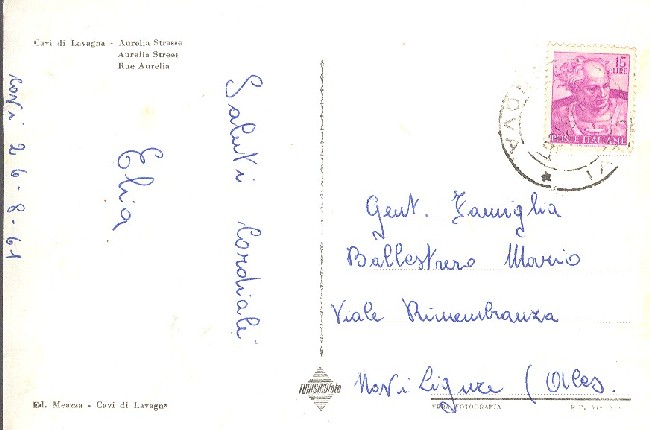 Cavi di Lavagna - Aurelia Strasse
Aurelia Street
Rue Aurelia
Saluti Cordiali
Elia
Novi 26-8-61
15
LIRE
POSTE ITALIANE
Gent. Famiglia
Ballestrero Mario
Viale Rimembranza
Novi Ligure (Ales.
Ed. Meazza - Cavi di Lavagna
VERA FOTOGRAFIA